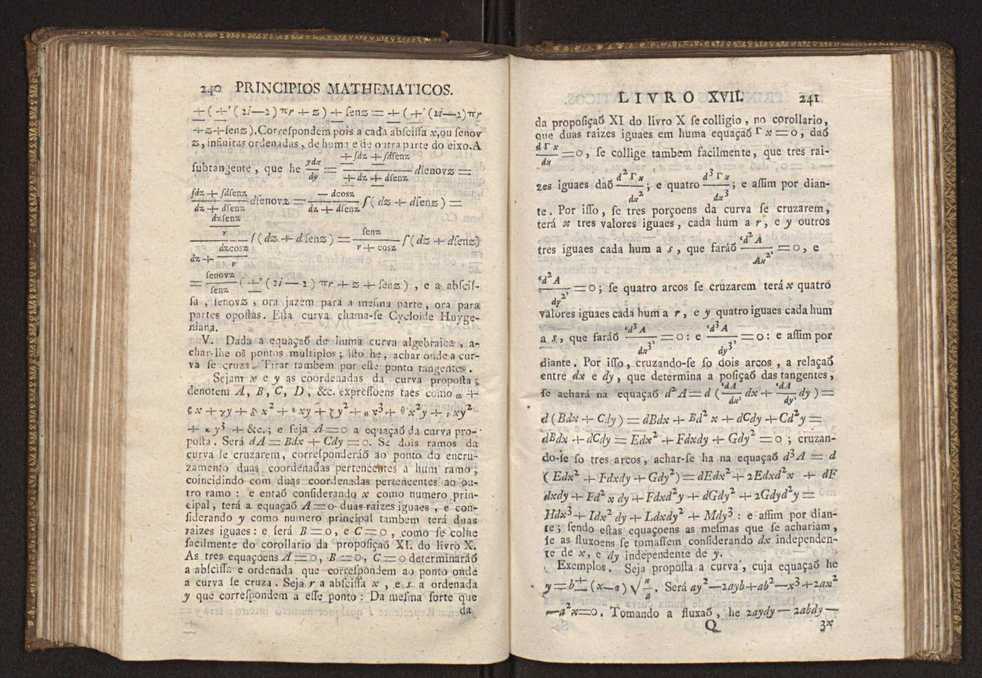 240 PRINCIPIOS MATHEMATICOS.
+(+'(2i—2)πr+z)+ſenz=+(+'(2i—2)πr
+z+ſenz). Correſpondem pois a cada abſciſſa x, ou ſenov
z, infinitas ordenadas, de huma e de outra parte do eixo. A
ſubtangente, que he ydx/dy = (+ſdz+ſdſenz)/(+dz+dſenz) dſenovz =
(ſdz+ſdſenz)/(dz+dſenz) dſenovz = (—dcosz)/(dz+dſenz) ſ(dz+dſenz) =
(dzſenz/r)/(dz+dzcosz/r) ſ(dz+dſenz) = ſenz/(r+cosz) ſ(dz+dſenz)
= ſenovz/ſenz (+'(2i—2)πr+z+ſenz), e a abſciſ-
ſa, ſenovz, ora jazem para a meſma parte, ora para
partes opoſtas. Eſta curva chama-ſe Cycloide Huyge-
niana.
V. Dada a equaçaõ de huma curva algebraica, a-
char-lhe os pontos multiplos; iſto he, achar onde a cur-
va ſe cruza. Tirar tambem por eſſe ponto tangentes.
Sejam x e y as coordenadas da curva propoſta;
denotem A, B, C, D, &c. expreſſoens taes como α+
ϐx+γy+δx²+εxy+ζy²+ηx³+θx²y+ιxy²
+κy³+&c.; e ſeja A=0 a equaçaõ da curva pro-
poſta. Será dA=Bdx+Cdy=0. Se dois ramos da
curva ſe cruzarem, correſponderáõ ao ponto do encru-
zamento duas coordenadas pertencentes a hum ramo,
coincidindo com duas coordenadas pertencentes ao ou-
tro ramo: e entaõ conſiderando x como numero prin-
cipal, terá a equaçaõ A=0 duas raizes iguaes, e con-
ſiderando y como numero principal tambem terá duas
raizes iguaes: e ſerá B=0, e C=0, como ſe colhe
facilmente do corollario da propoſiçaõ XI. do livro X.
As tres equaçoens A=0, B=0, C=0 determinaráõ
a abſciſſa e ordenada que correſpondem ao ponto onde
a curva ſe cruza. Seja r a abſciſſa x, e s a ordenada
y que correſpondem a eſſe ponto: Da meſma ſorte que
da
LIVRO XVII. 241
da propoſiçaõ XI do livro X ſe colligio, no corollario,
que duas raizes iguaes em huma equaçaõ Γx=0, daõ
dΓx/dx=0, ſe collige tambem facilmente, que tres rai-
zes iguaes daõ d²Γx/dx²; e quatro d³Γx/dx³; e aſſim por dian-
te. Por iſſo, ſe tres porçoens da curva ſe cruzarem,
terá x tres valores iguaes, cada hum a r, e y outros
tres iguaes cada hum a s, que faráõ 'd²A/dx²'=0, e
'd²A/dy²'=0; ſe quatro arcos ſe cruzarem terá x quatro
valores iguaes cada hum a r, e y quatro iguaes cada hum
a s, que faráõ 'd³A/dx³'=0: e 'd³A/dy³'=0: e aſſim por
diante. Por iſſo, cruzando-ſe ſo dois arcos, a relaçaõ
entre dx e dy, que determina a poſiçaõ das tangentes,
ſe achará na equaçaõ d²A=d('dA/dx' dx+'dA/dy' dy)=
d(Bdx+Cdy)=dBdx+Bd²x+dCdy+Cd²y=
dBdx+dCdy=Edx²+Fdxdy+Gdy²=0; cruzan-
do-ſe ſo tres arcos, achar-ſe ha na equaçaõ d³A=d
(Edx²+Fdxdy+Gdy²)=dEdx²+2Edxd²x+dF
dxdy+Fd²xdy+Fdxd²y+dGdy²+2Gdyd²y=
Hdx³+Idx²dy+Ldxdy²+Mdy³: e aſſim por dian-
te; ſendo eſtas equaçoens as meſmas que ſe achariam,
ſe as fluxoens ſe tomaſſem conſiderando dx independen-
te de x, e dy independente de y.
Exemplos. Seja propoſta a curva, cuja equaçaõ he
y=b±(x—a)√x/a. Será ay²—2ayb+ab²—x³+2ax²
—a²x=0. Tomando a fluxaõ, he 2aydy—2abdy—
Q 3x